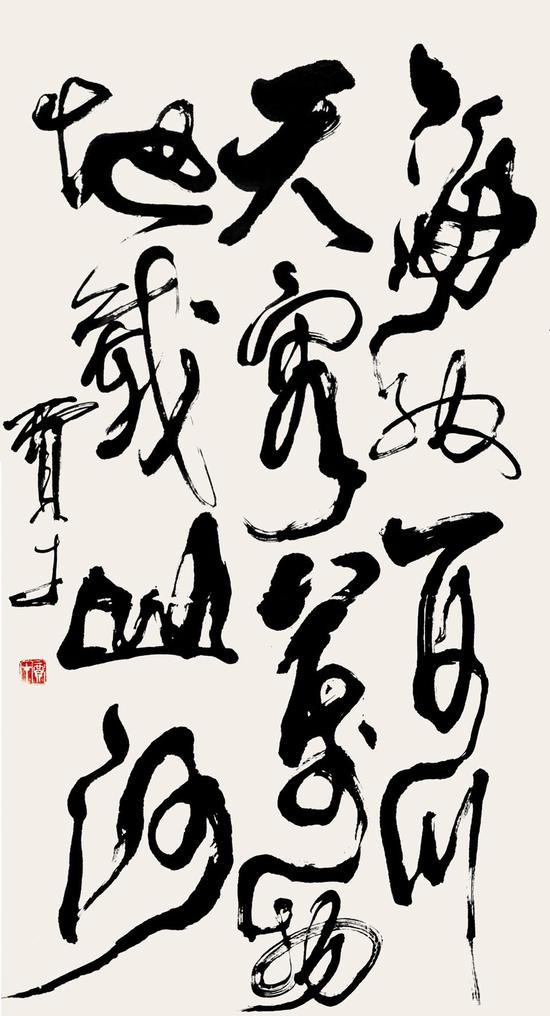 海纳百川
天容万物
地载山河
贾才